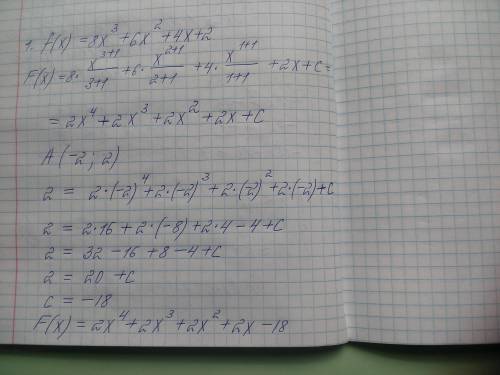 1. f(x) = 8x³+6x²+4x+2
F(x)=8·x³⁺¹/3+1 +6·x²⁺¹/2+1 +4·x¹⁺¹/1+1 +2x+c=
= 2x⁴+2x³+2x²+2x+C
A(-2; 2)
2 = 2·(-2)⁴+2·(-2)³+2·(-2)²+2·(-2)+c
2 = 2·16+2·(-8)+2·4-4+c
2 = 32-16+8-4+c
2 = 20+c
c = -18
F(x)=2x⁴+2x³+2x²+2x-18